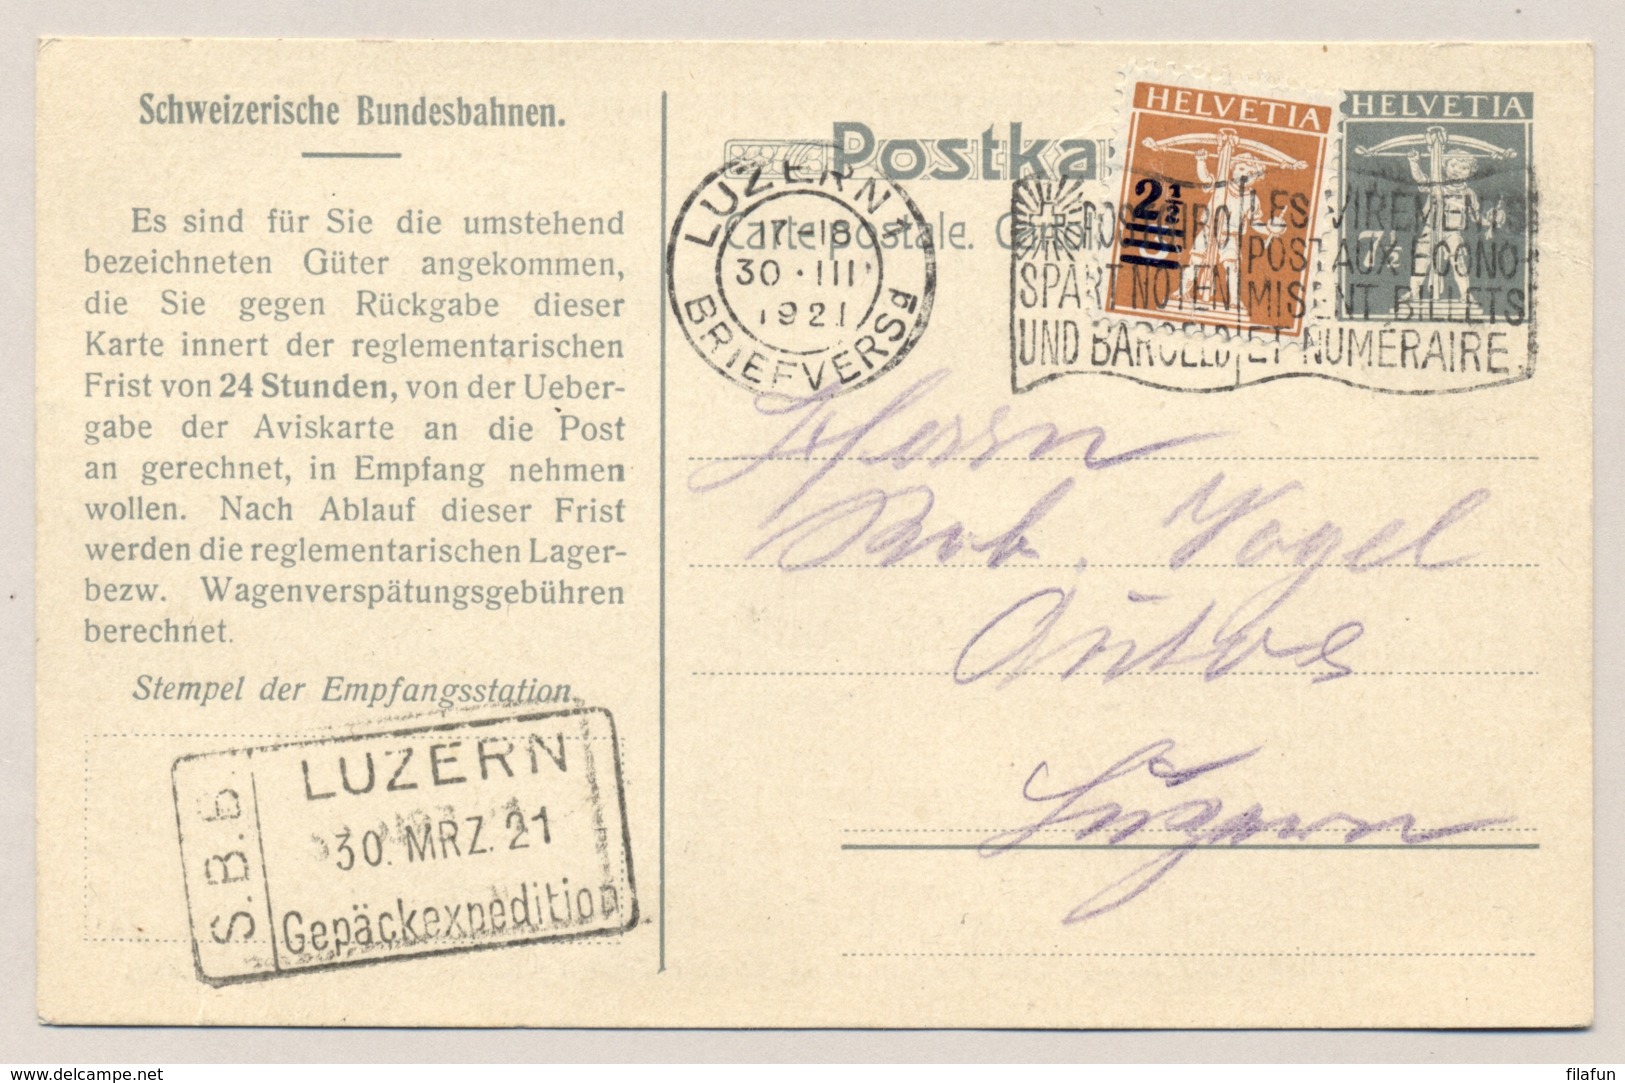 Schweizerische Bundesbahnen.
Es sind für Sie die umstehend
bezeichneten Güter angekommen,
die Sie gegen Rückgabe dieser
Karte innert der reglementarischen
Frist von 24 Stunden, von der Ueber-
gabe der Aviskarte an die Post
an gerechnet, in Empfang nehmen
wollen. Nach Ablauf dieser Frist
werden die reglementarischen Lager-
bezw. Wagenverspätungsgebühren
berechnet.
Stempel der Empfangsstation.
S.B.B.
LUZERN
30. MRZ. 21
Gepäckexpedition
Postka
Carte postale.
LUZERN 1
17-18
30·III
1921
BRIEFVERSd
HELVETIA
2½
HELVETIA
7½
POSTGIRO
SPART NOTEN
UND BARGELD
LES VIREMENTS
POSTAUX ÉCONO-
MISENT BILLETS
ET NUMÉRAIRE.
Herrn
Rob. Vogel
Autos
Luzern
delcampe.net
filafun